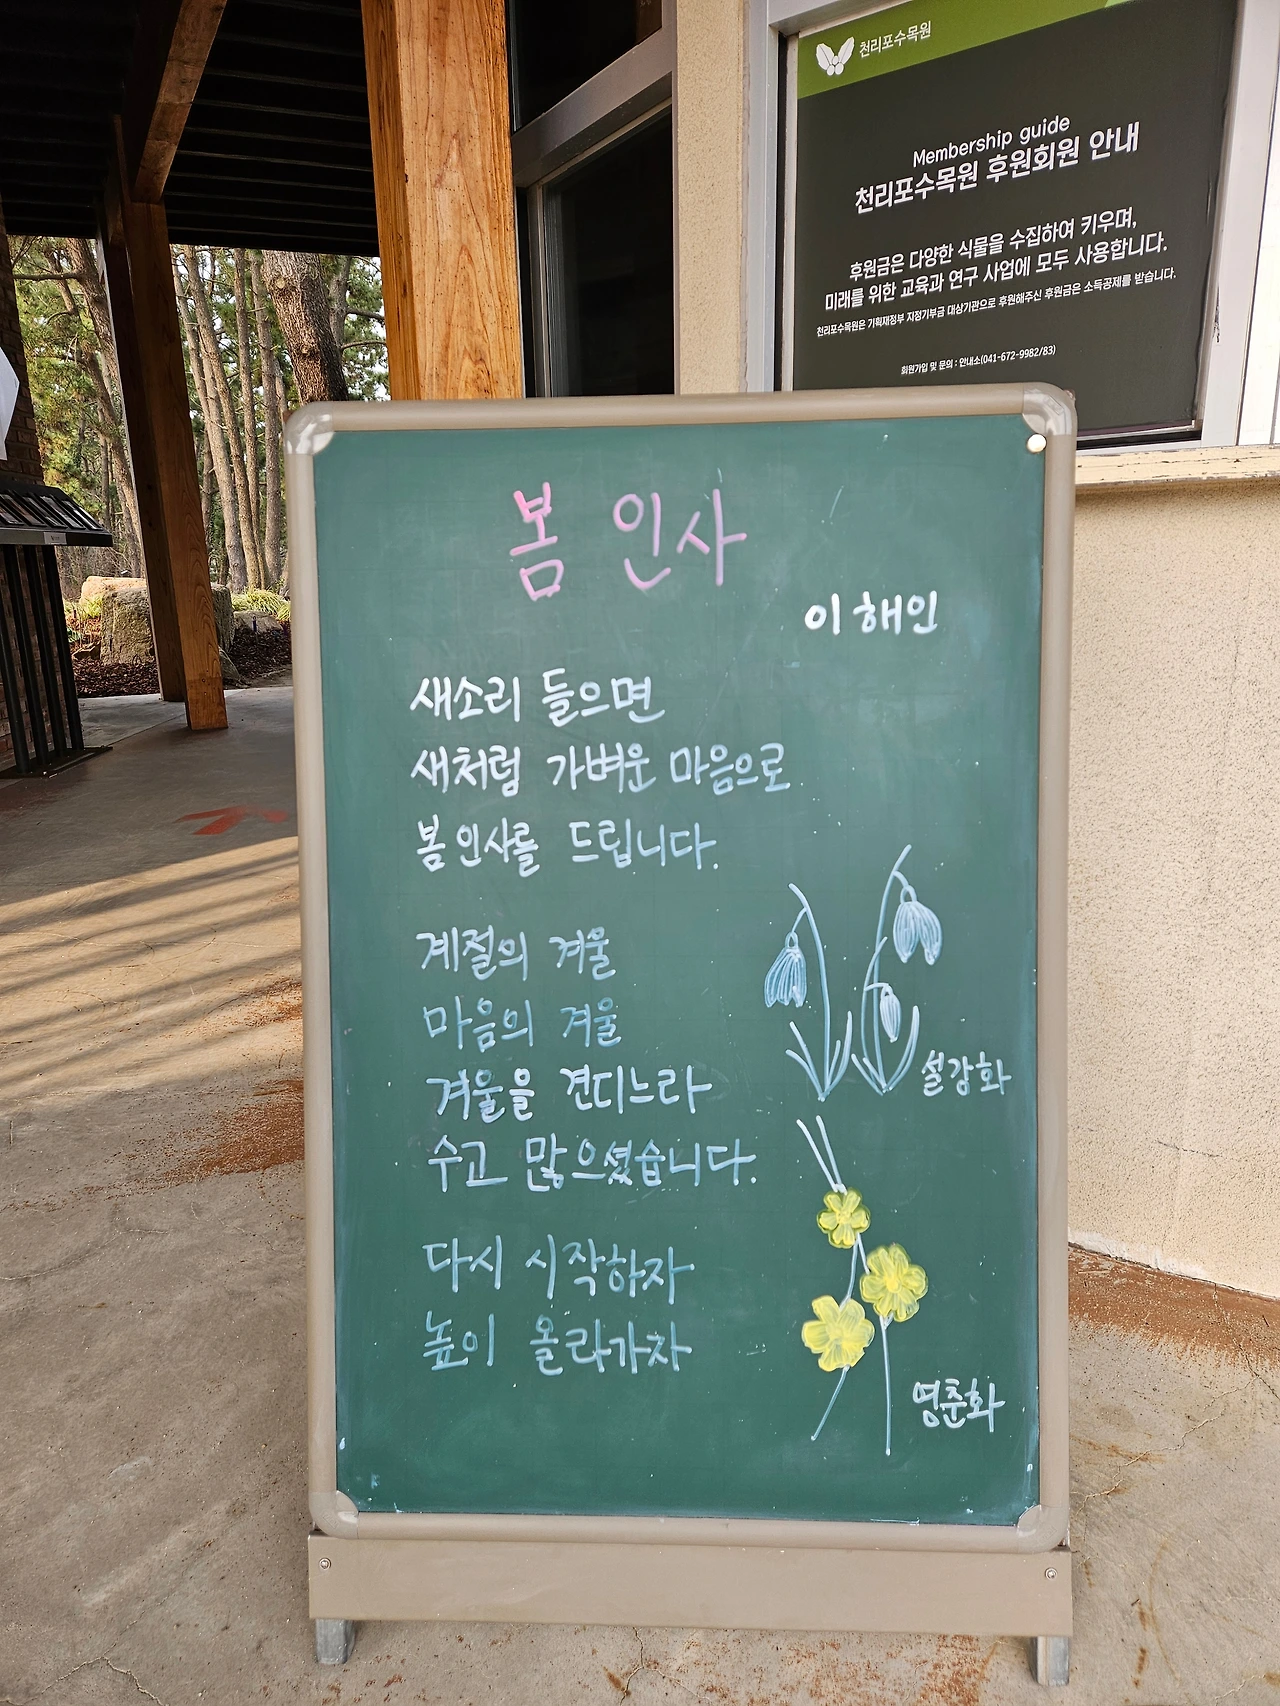 천리포수목원
Membership guide
천리포수목원 후원회원 안내
후원금은 다양한 식물을 수집하여 키우며,
미래를 위한 교육과 연구 사업에 모두 사용합니다.
천리포수목원은 기획재정부 지정기부금 대상기관으로 후원해주신 후원금은 소득공제를 받습니다.
회원가입 및 문의 : 안내소(041-672-9982/83)
봄 인사
이해인
새소리 들으면
새처럼 가벼운 마음으로
봄 인사를 드립니다.
계절의 겨울
마음의 겨울
겨울을 견디느라
수고 많으셨습니다.
다시 시작하자
높이 올라가자
설강화
영춘화